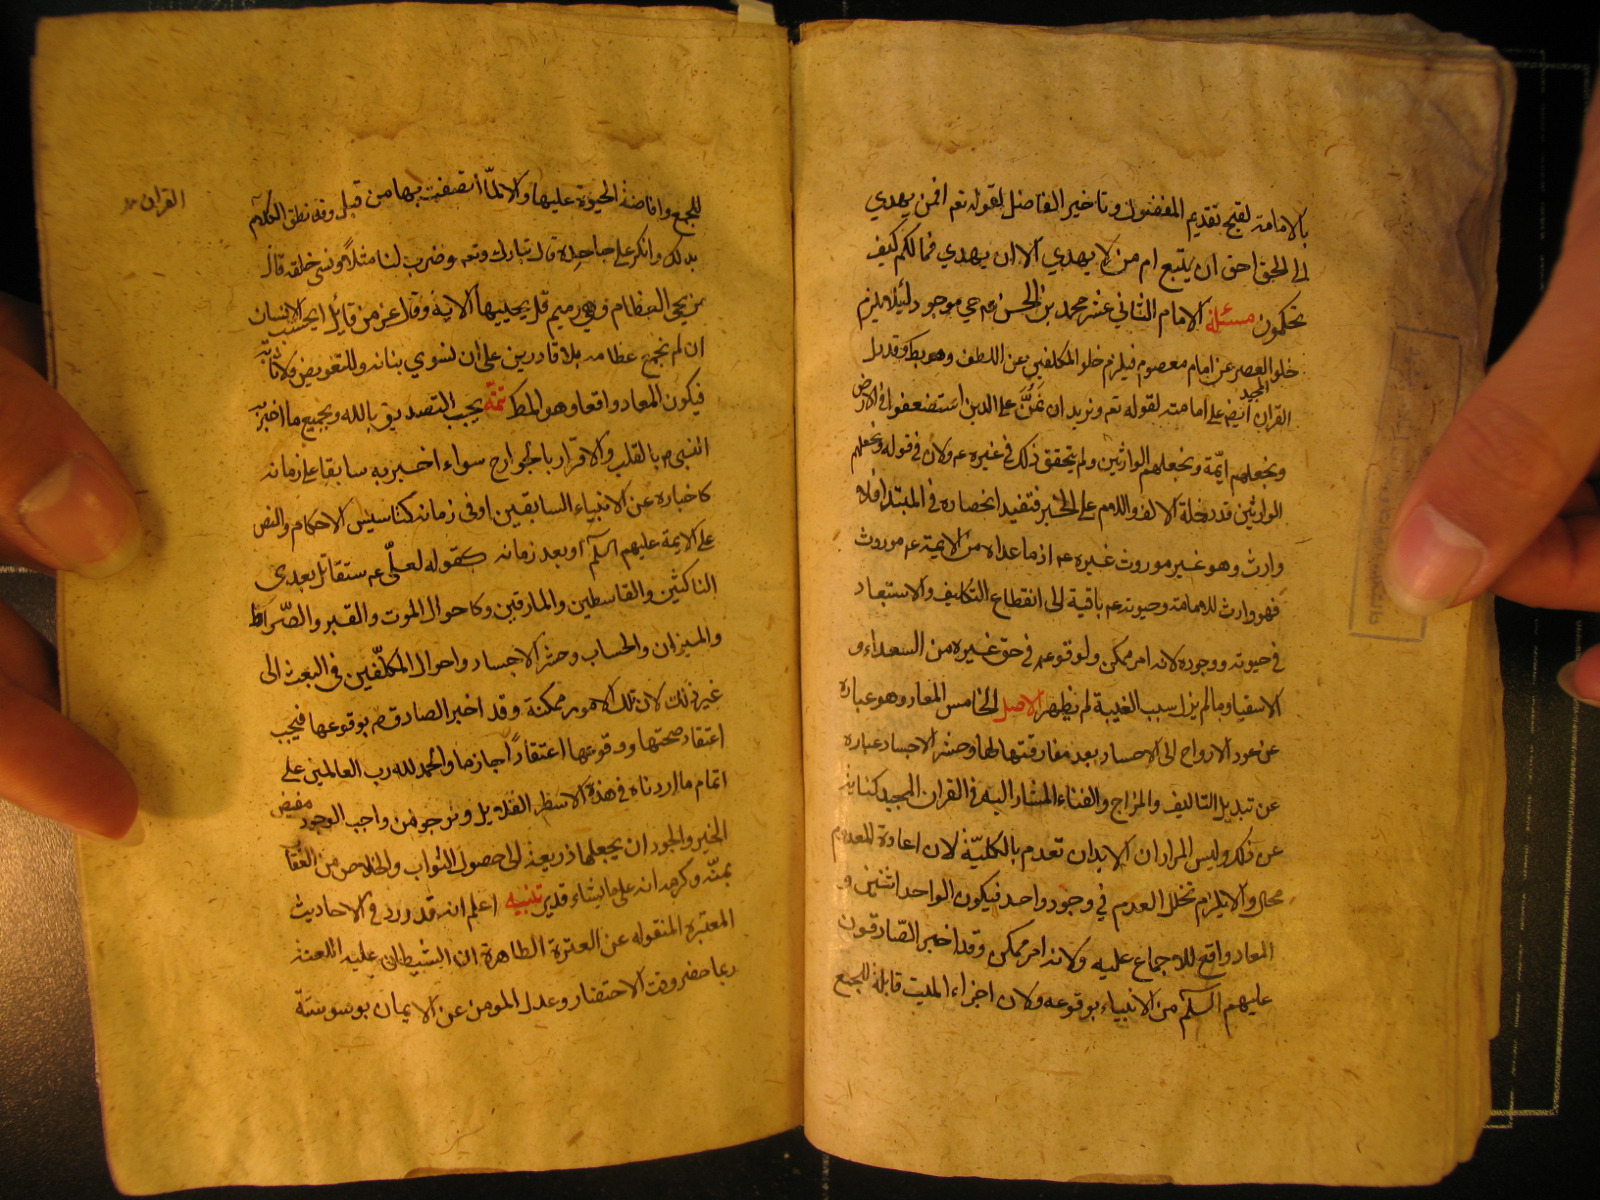 بالامامة لقبح تقديم المفضول وتاخير الفاضل لقوله تعم افمن يهدي
الى الحق احق ان يتبع ام من لا يهدي الا ان يهدي فما لكم كيف
تحكمون مسئلة الامام الثاني عشر محمد بن الحسن عم حي موجود لئلا يلزم
خلو العصر عن امام معصوم فيلزم خلو المكلفين عن اللطف وهو بط وقد دل
القران المجيد ايض على امامته لقوله تعم ونريد ان نمنّ على الذين استضعفوا في الارض
ونجعلهم ايمّة ونجعلهم الوارثين ولم يتحقق ذلك في غيره عم ولان في قوله ونجعلهم
الوارثين قد دخلة الالف واللام على الخبر فتفيد انحصاره في المبتدا فلا
وارث وهو غير موروث غيره عم اذ ما عداه من الايمة عم موروث
فهو وارث للامامة وحيوته عم باقية الى انقطاع التكليف والاستبعاد
في حيوته ووجوده لانه امر ممكن ولوقوعه في حق غيره من السعداء و
الاشقيا وما لم يزل سبب الغيبة لم يظهر الاصل الخامس المعاد وهو عبارة
عن عود الارواح الى الاجساد بعد مفارقتها لها وحشر الاجساد عبارة
عن تبديل التاليف والمزاج والفناء المشار اليه في القران المجيد كناية
عن ذلك وليس المراد ان الابدان تعدم بالكليّة لان اعادة المعدوم
محال والا يلزم تخلل العدم في وجود واحد فيكون الواحد اثنين و
المعاد واقع للاجماع عليه ولانه امر ممكن وقد اخبر الصّادقون
عليهم السلم من الانبياء بوقوعه ولان اجزاء الميت قابلة للجمع
للجمع وافاضة الحيوة عليها والا لمّا اتصفت بها من قبل وقد نطق الكلام
القران
بذلك وانكر على جاحده قال تبارك وتعم وضرب لنا مثلاً ونسي خلقه قال
من يحي العظام وهي رميم قل يحييها الاية وقال عز من قايل ايحسب الانسان
ان لم نجمع عظامه بلا قادرين على ان نسوي بنانه وللتعويض
فيكون المعاد واقعا وهو المط تتمّة يجب التصديق بالله وبجميع ما اخبر به
النبي ص بالقلب والاقرار بالجوارح سواء اخبر به سابقا على زمانه
كاخباره عن الانبياء السابقين او في زمانه كتاسيس الاحكام والنص
على الايمة عليهم السلم او بعد زمانه كقوله لعلي عم ستقاتل بعدي
الناكثين والقاسطين والمارقين وكاحوال الموت والقبر والصّراط
والميزان والحساب وحشر الاجساد واحوال المكلّفين في البعث الى
غير ذلك لان تلك الامور ممكنة وقد اخبر الصادق ص بوقوعها فيجب
اعتقاد صحتها ووقوعها اعتقاداً جازما والحمد لله رب العالمين على
اتمام ما اردناه في هذة الاسطر القلايل ونرجو من واجب الوجود مفيض
الخير والجود ان يجعلها ذريعة الى حصول الثواب والخلاص من العقاب
بمنّه وكرمه انه على ما يشاء قدير تنبيه اعلم انه قد ورد في الاحاديث
المعتبرة المنقوله عن العترة الطاهرة ان الشيطان عليه اللعنة
ربما حضر وقت الاحتضار وعدل المومن عن الايمان بوسوسة